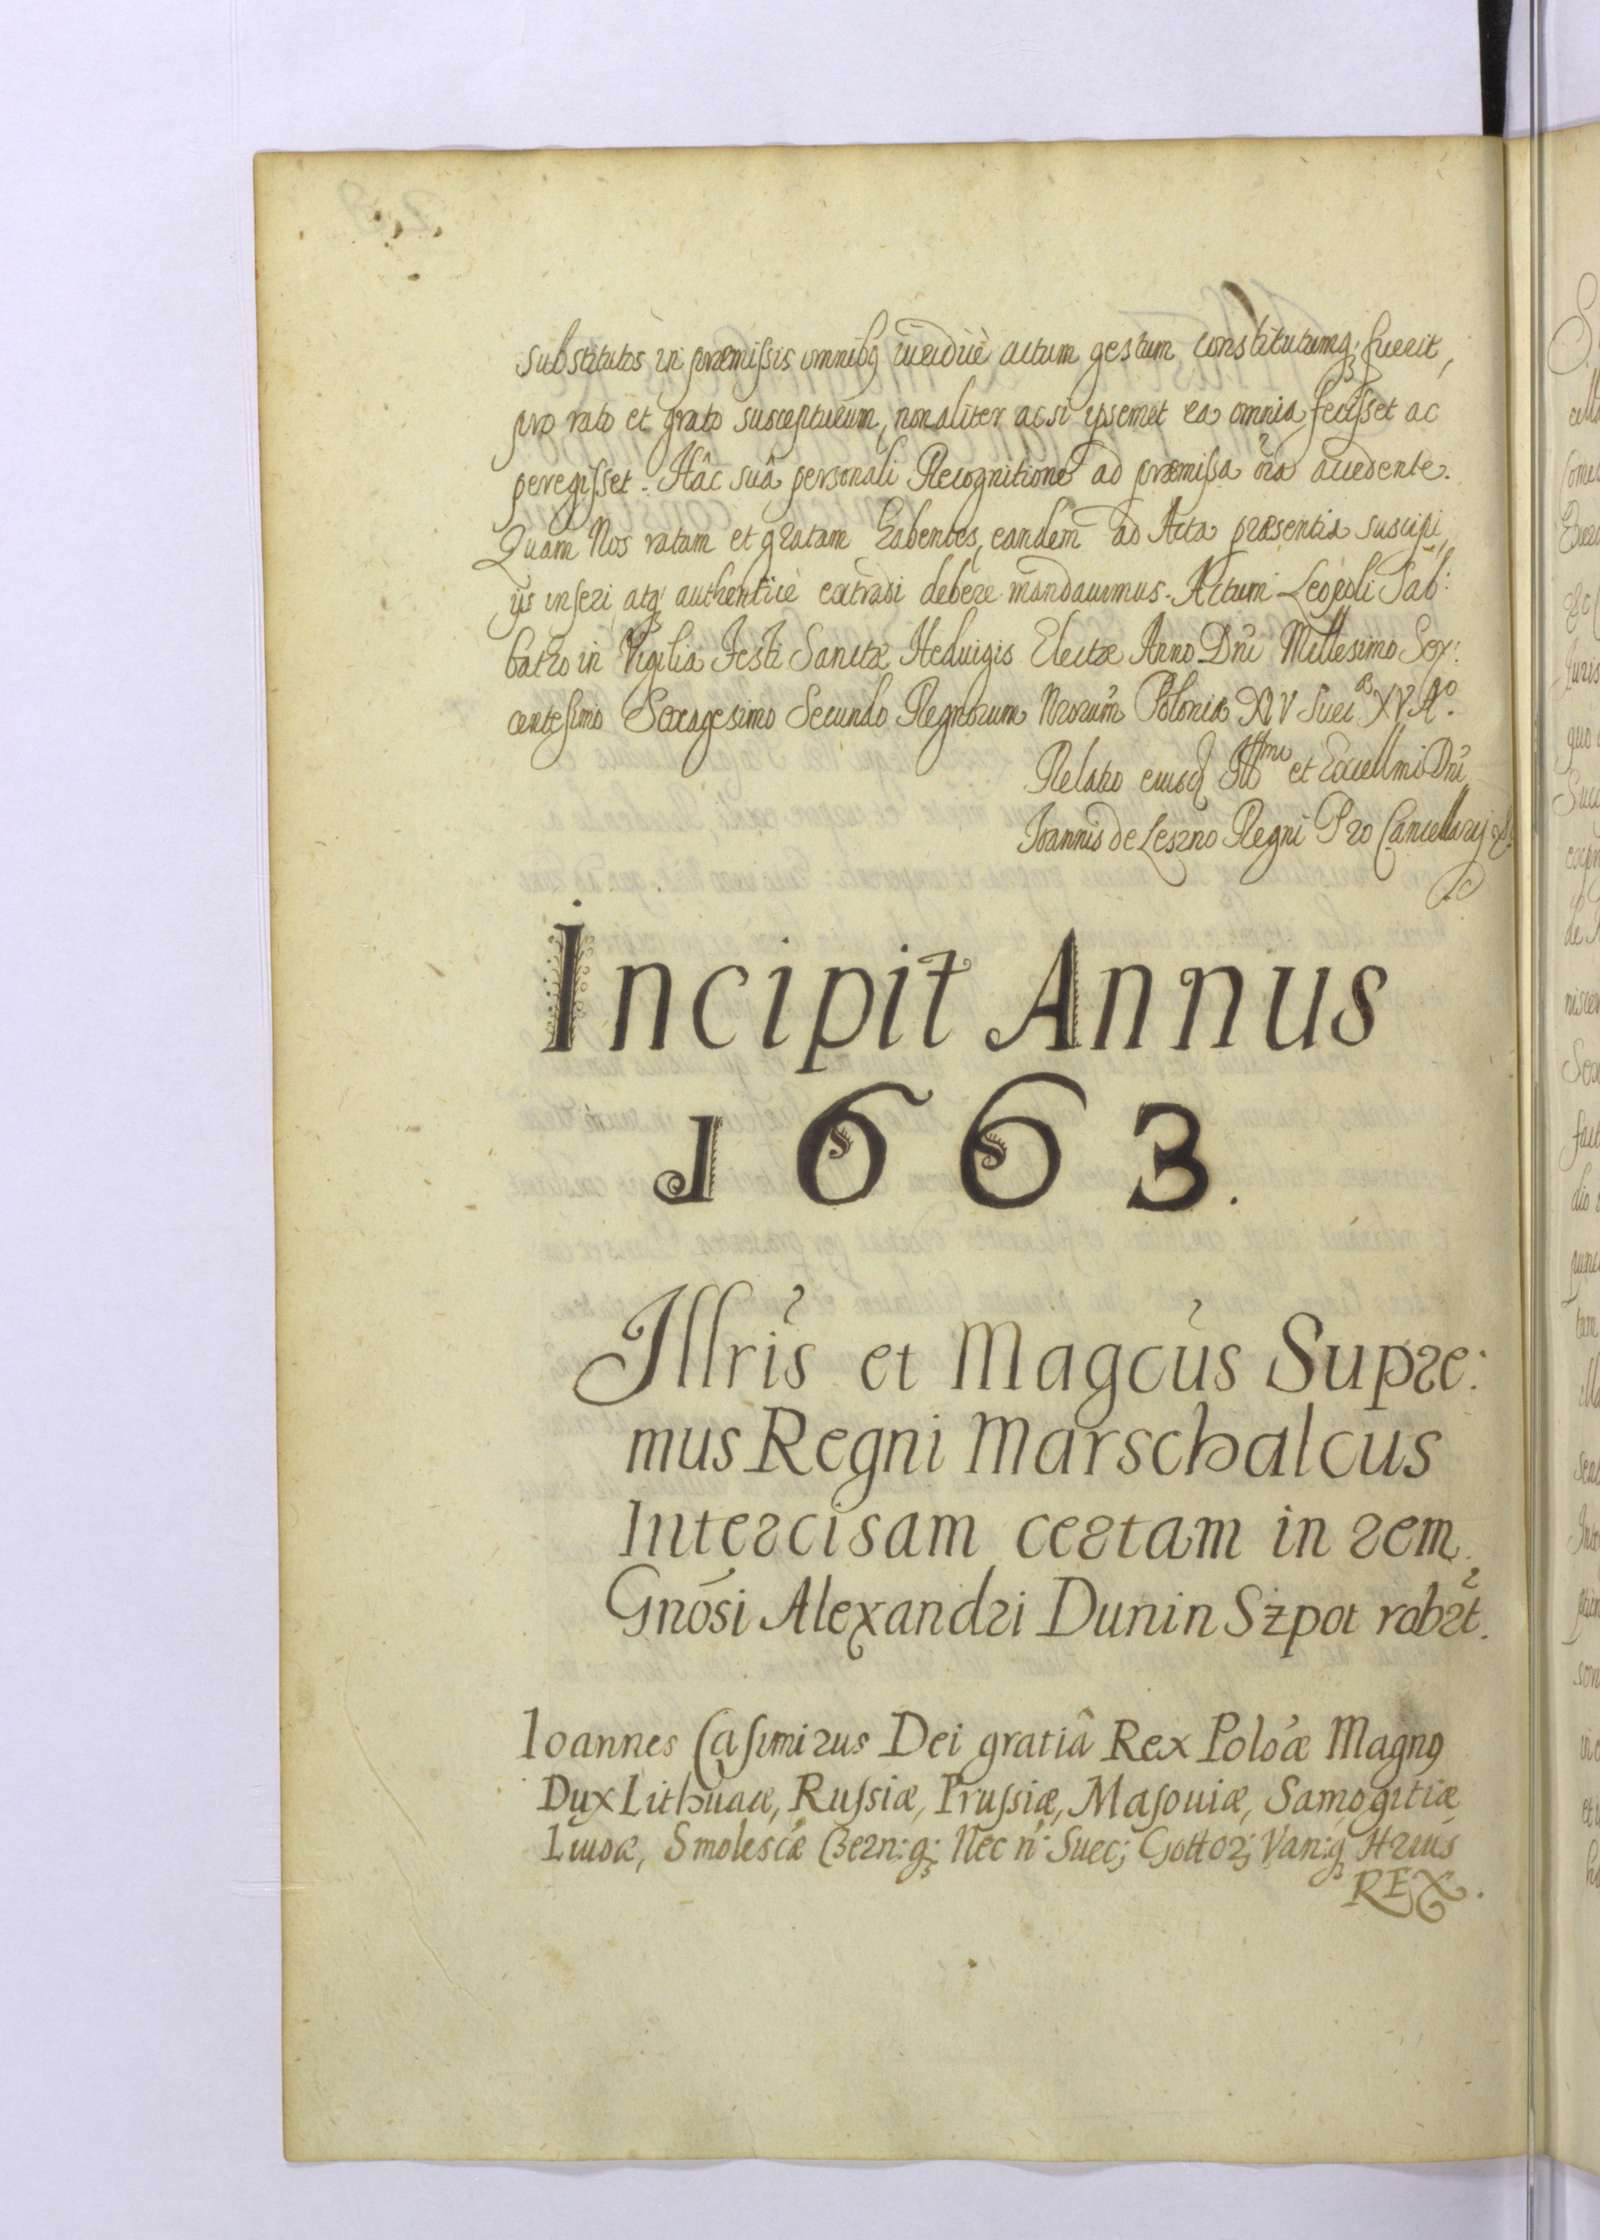 substitutos in præmissis omnibq iuridicè actum gestum constitutumq; fuerit,
pro rato et grato suscepturum, non aliter ac si ipsemet ea omnia fecisset ac
peregisset. Hâc suâ personali Recognitione ad præmissa oia accedente.
Quam Nos ratam et gratam habentes, eandem ad Acta præsentia suscipi,
ijs inseri atq authenticè extradi debere mandauimus. Actum Leopoli Sab:
batho in Vigilia Festi Sanctæ Heduigis Electæ Anno Dni Millesimo Sex:
centesimo Sexagesimo Secundo Regnorum Nrorum Poloniæ XIV Sueæ XV Aº.
Relatio eiusd Illmi et Excellmi Dni
Joannis de Leszno Regni Pro Cancellarij
Incipit Annus
1663.
Illris et Magcus Supre:
mus Regni Marschalcus
Intercisam certam in rem
Gnosi Alexandri Dunin Szpot robrt.
Ioannes Casimirus Dei gratiâ Rex Poloæ Magnq
Dux Lithuaæ, Russiæ, Prussiæ, Masouiæ, Samogitiæ
Liuoæ, Smolescæ Czern:q; Nec n: Suec; Gottor; Van:q Hrius
REX.